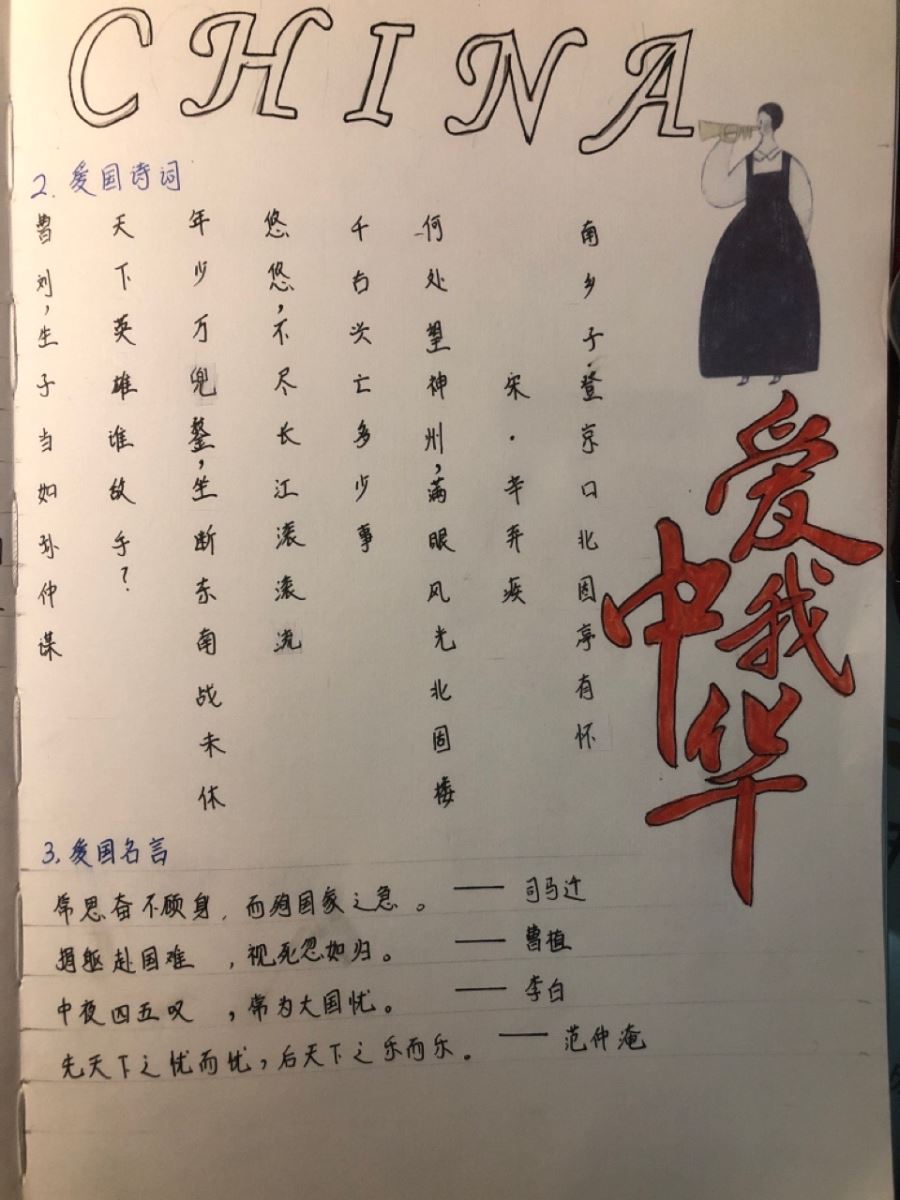 CHINA
2. 爱国诗词
南乡子·登京口北固亭有怀
宋·辛弃疾
何处望神州,满眼风光北固楼
千古兴亡多少事
悠悠,不尽长江滚滚流
年少万兜鍪,坐断东南战未休
天下英雄谁敌手?
曹刘,生子当如孙仲谋
爱我
中华
3. 爱国名言
常思奋不顾身,而殉国家之急。——司马迁
捐躯赴国难,视死忽如归。——曹植
中夜四五叹,常为大国忧。——李白
先天下之忧而忧,后天下之乐而乐。——范仲淹